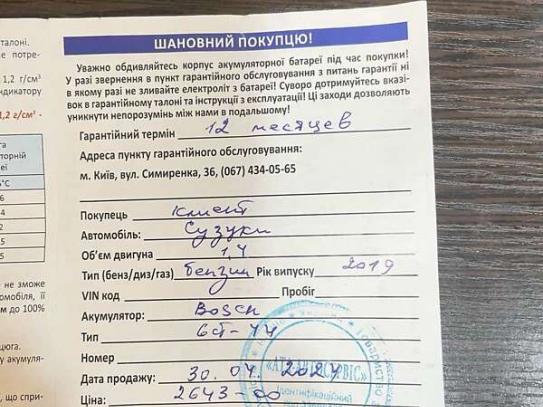 талоні.
не потре-
1,2 г/см³
ндикатору
1,2 г/см³ -
га
торній
еї
°C
6
4
5
5
не зможе
омобіля, її
м до 100%
цюга.
у акумуля-
ації, що спри-
ШАНОВНИЙ ПОКУПЦЮ!
Уважно обдивляйтесь корпус акумуляторної батареї під час покупки!
У разі звернення в пункт гарантійного обслуговування з питань гарантії ні
в якому разі не зливайте електроліт з батареї! Суворо дотримуйтесь вказі-
вок в гарантійному талоні та інструкції з експлуатації! Ці заходи дозволяють
уникнути непорозумінь між нами в подальшому!
Гарантійний термін 12 месяцев
Адреса пункту гарантійного обслуговування:
м. Київ, вул. Симиренка, 36, (067) 434-05-65
Покупець клиент
Автомобіль: Сузуки
Об'єм двигуна 1,4
Тип (бенз/диз/газ) бензин Рік випуску 2019
VIN код Пробіг
Акумулятор: Bosch
Тип 6СТ-44
Номер
Дата продажу: 30.04.2024
Ціна: 2643-00
Ідентифікаційний